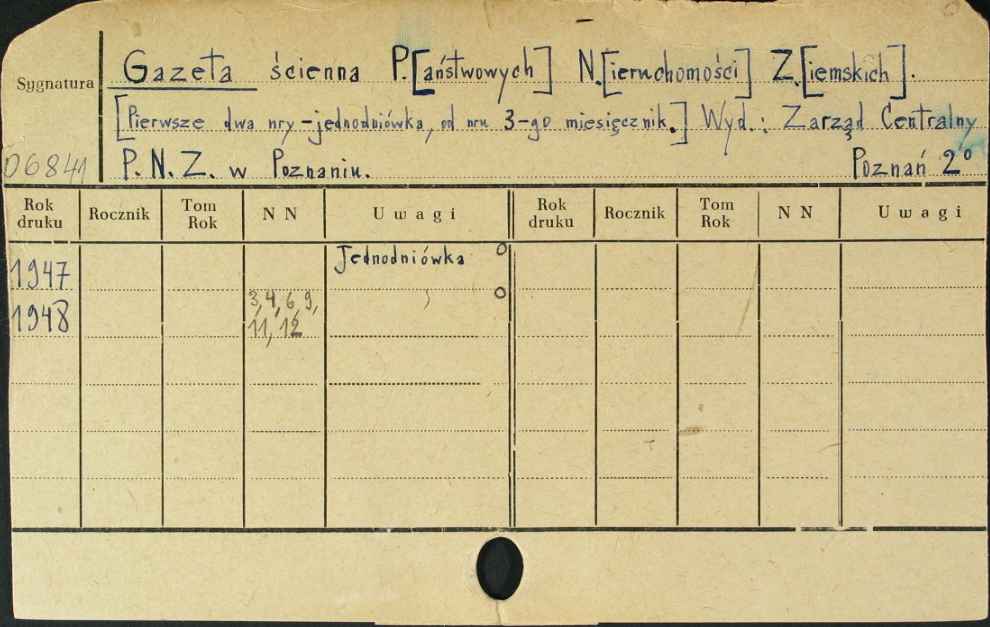 Gazeta ścienna P.[aństwowych] N.[ieruchomości] Z.[iemskich].
Sygnatura
[Pierwsze dwa nry-jednodniówka, od nru 3-go miesięcznik.] Wyd.: Zarząd Centralny
06841 P. N. Z. w Poznaniu. Poznań 2°
Rok druku Rocznik Tom Rok N N Uwagi Rok druku Rocznik Tom Rok N N Uwagi
1947 Jednodniówka o
1948 3, 4, 6, 9, o
11, 12